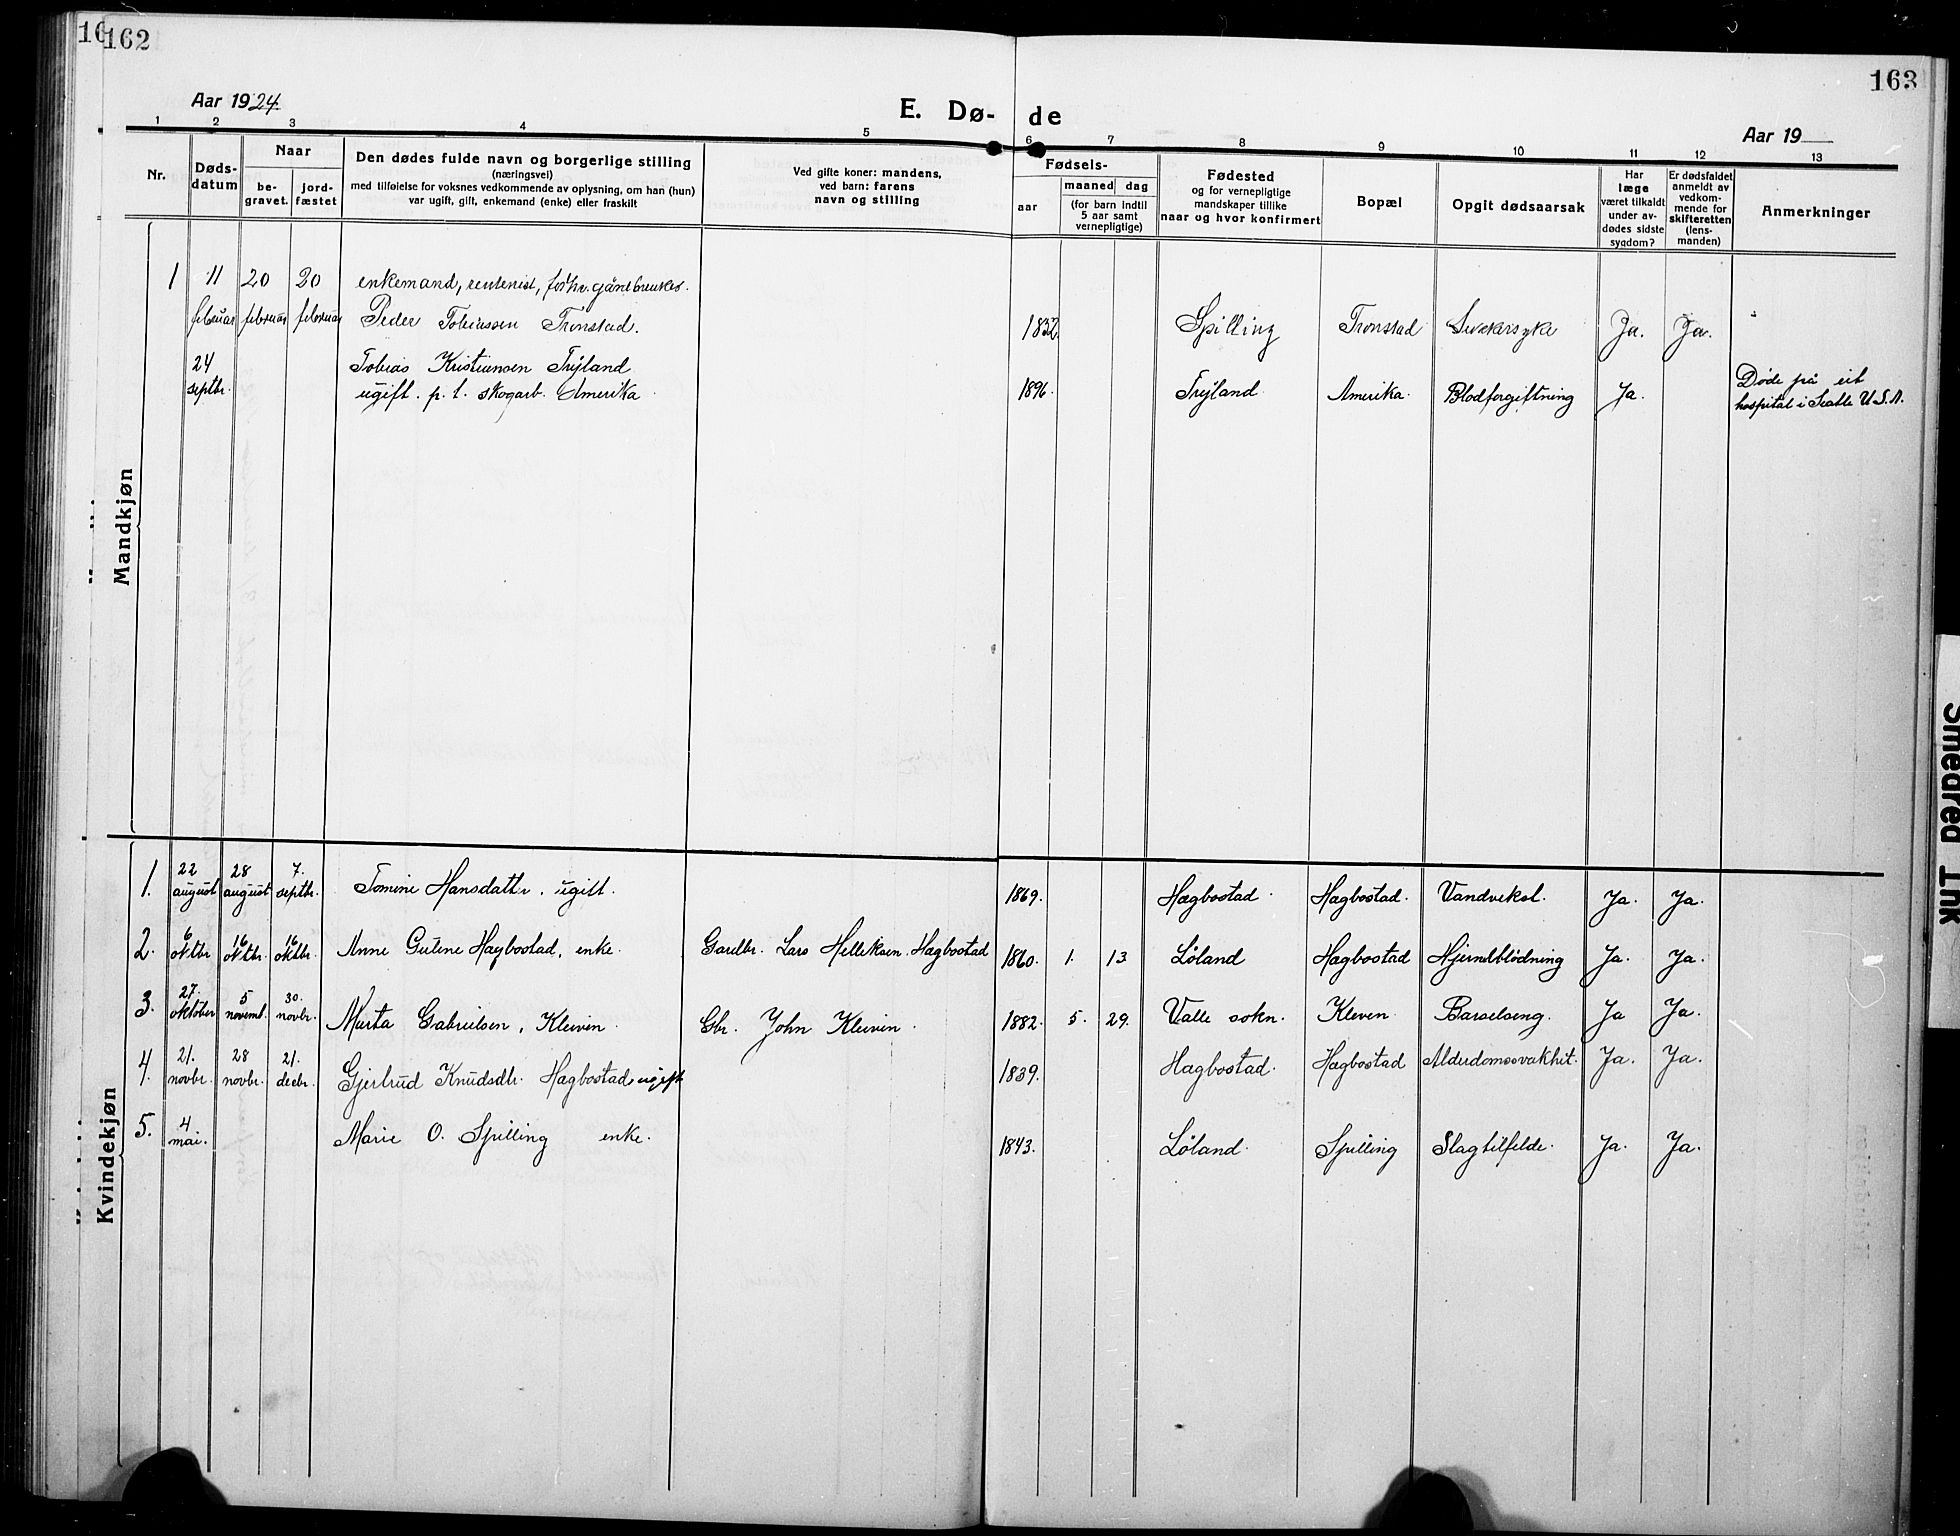 162
163
Aar 1924
E. Dø-de
Aar 19
1 2 3 4 5 6 7 8 9 10 11 12 13
Nr.
Døds-
datum
Naar
be-
gravet.
jord-
fæstet
Den dødes fulde navn og borgerlige stilling
(næringsvei)
med tilføielse for voksnes vedkommende av oplysning, om han (hun)
var ugift, gift, enkemand (enke) eller fraskilt
Ved gifte koner: mandens,
ved barn: farens
navn og stilling
Fødsels-
aar
maaned dag
(for barn indtil
5 aar samt
vernepligtige)
Fødested
og for vernepligtige
mandskaper tillike
naar og hvor konfirmert
Bopæl
Opgit dødsaarsak
Har
læge
været tilkaldt
under av-
dødes sidste
sygdom?
Er dødsfaldet
anmeldt av
vedkom-
mende for
skifteretten
(lens-
manden)
Anmerkninger
Mandkjøn
1 11 20 20 enkemand, rentenist, forhv. gårdbruker.
februar februar februar Peder Tobiassen Tronstad. 1832. Spilling Tronstad Sukkersyke Ja. Ja.
24 Tobias Kristiansen Trÿland
septbr. ugift. p. t. skogarb. Amerika 1896. Trÿland Amerika. Blodforgiftning Ja. Døde på eit
hospital i Seatle U.S.A.
Kvindekjøn
1. 22 august 28 august 7. septbr. Tomine Hansdattr. ugift. 1869. Hægbostad. Hægbostad. Vandveksl. Ja. Ja.
2. 6 oktbr 16 oktbr. 16 oktbr. Anne Gurine Hægbostad, enke. Gardbr. Lars Helleksen Hægbostad 1860. 1. 13 Løland Hægbostad Hjerneblødning Ja. Ja.
3. 27. oktober 5 novemb. 30. novbr. Marta Gabrielsen, Kleiven. Gbr. John Kleiven. 1882. 5. 29. Valle sokn. Kleven Barselseng. Ja Ja.
4. 21. novbr. 28 novbr. 21. decbr. Gjertrud Knudsdtr. Hægbostad ugift 1839. Hægbostad. Hægbostad Alderdomssvakhit. Ja. Ja.
5. 4 mai. Marie O. Spilling enke. 1843. Løland. Spilling Slagtilfelde. Ja. Ja.
Smeared Ink